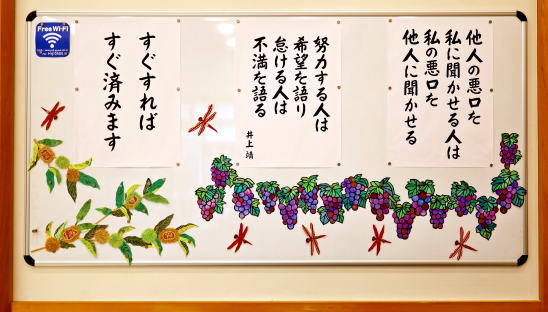 Free Wi-Fi
他人の悪口を
私に聞かせる人は
私の悪口を
他人に聞かせる
努力する人は
希望を語り
怠ける人は
不満を語る
井上 靖
すぐすれば
すぐ済みます